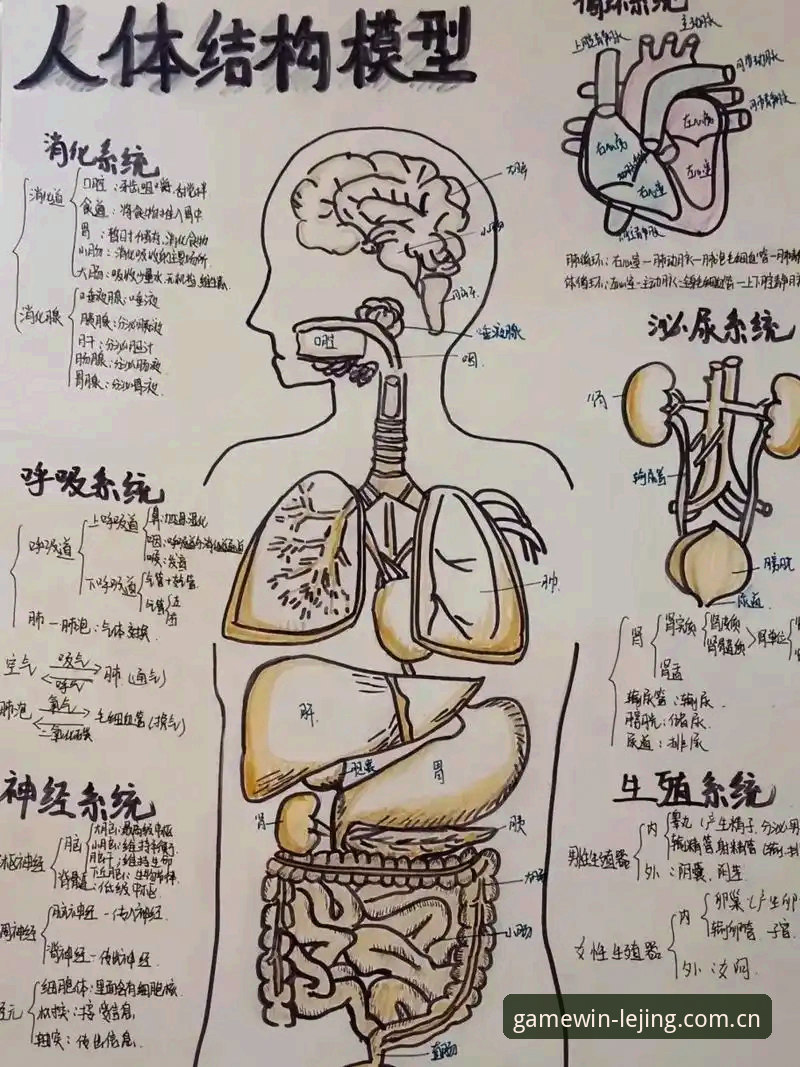 人体结构模型
消化系统
消化道
口腔：牙齿咀嚼，
食道：将食物
胃：暂时储存，消化食物
小肠：消化吸收的主要场所
大肠：吸收少量水，无机盐
消化腺
唾液腺：唾液
胰腺：分泌胰液
肝：分泌胆汁
肠腺：分泌肠液
胃腺：分泌胃液
呼吸系统
呼吸道
上呼吸道
鼻：加温湿化
咽：呼吸道
喉：发音
下呼吸道
气管+支气管
肺—肺泡：气体交换
空气 吸气 呼气 肺（通气）
肺泡 氧气 二氧化碳 毛细血管（换气）
神经系统
脑
大脑：最高级中枢
脑干：维持生命
脊髓：低级中枢
脑神经
脊神经—传出神经
细胞体：里面含有细胞核
树突：接受信息
轴突：传出信息
大脑
小脑
口腔
唾液腺
咽
肺
肝
胆囊
胃
肾
胰
大肠
小肠
直肠
循环系统
主动脉
上腔静脉
肺动脉
肺静脉
左心房
右心房
左心室
右心室
下腔静脉
肺循环：右心室—肺动脉—肺泡毛细血管—肺静
体循环：左心室—主动脉—全身毛细血管—上下腔静
泌尿系统
肾
输尿管
膀胱
尿道
肾
肾实质
肾皮质
肾髓质
肾单位
肾盂
输尿管：输尿
膀胱：储尿
尿道：排尿
生殖系统
男性生殖器
内
睾丸（产生精子，分泌男
输精管射精管（输，排
外：阴囊，阴茎
女性生殖器
内
卵巢（产生卵
输卵管，子宫
外：女阴
gamewin-lejing.com.cn